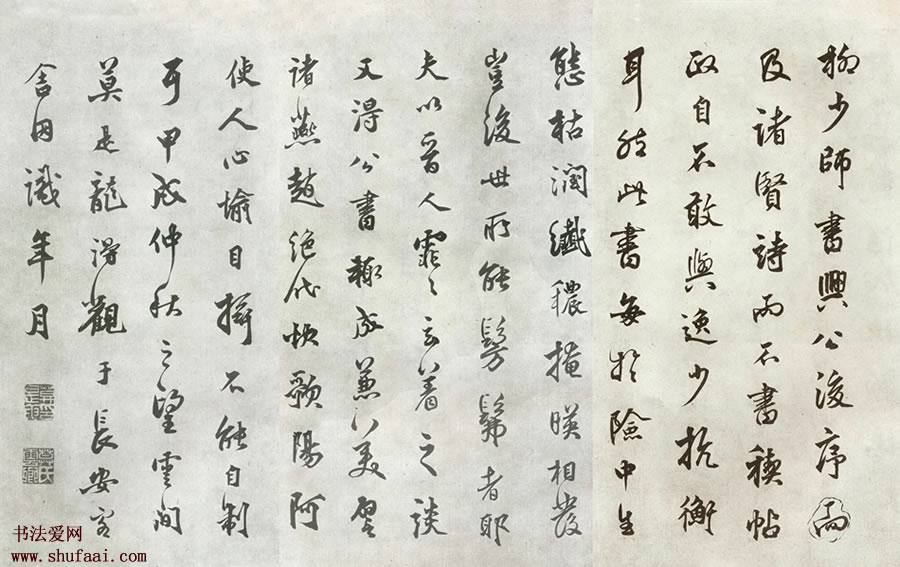 柳少師書興公後序
及諸賢詩而不書稧帖
政自不敢與逸少抗衡
耳然此書每於險中生
態枯潤纖穠掩暎相發
豈後世所能髣髴者耶
夫以晉人霏〻玄著之談
又得公書稱成兼美
諸燕趙絕代帙歌陽阿
使人心愉目搖不能自制
耳甲戌仲秋之望雲間
莫是龍得觀于長安客
舍因識年月
书法爱网
www.shufaai.com